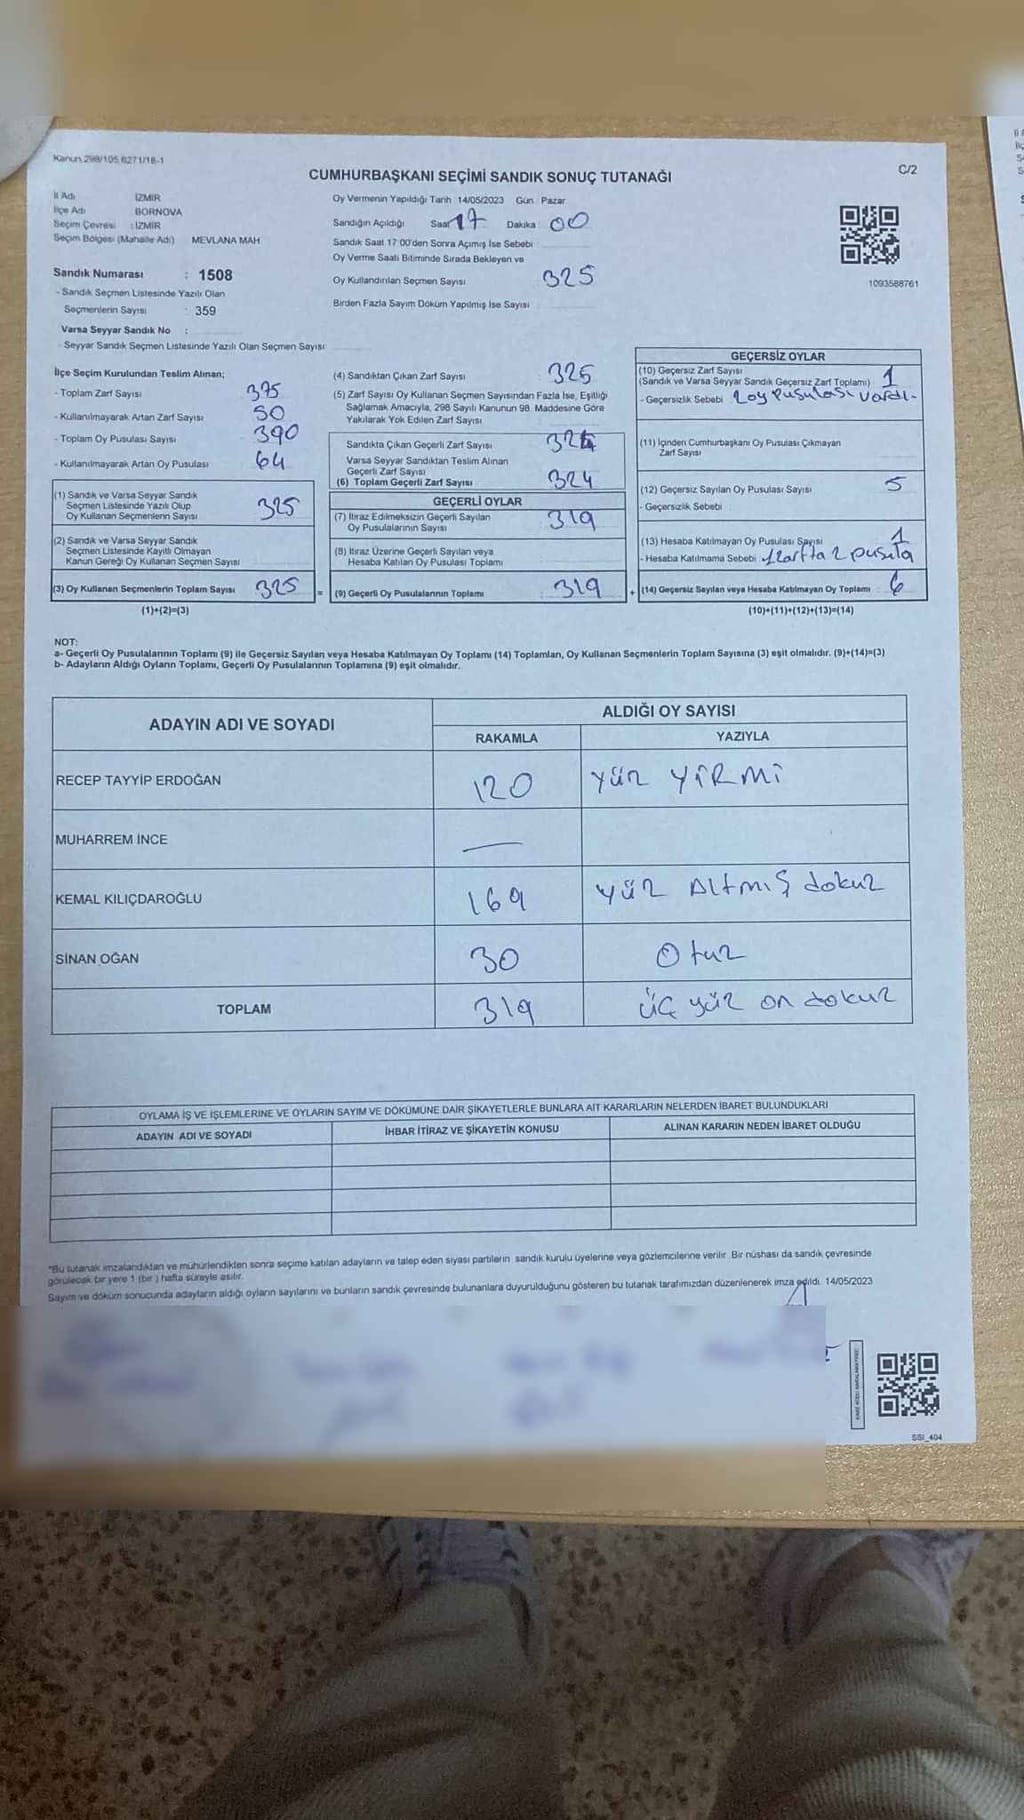 Kanun 298/105,6271/18-1
C/2
CUMHURBAŞKANI SEÇİMİ SANDIK SONUÇ TUTANAĞI
İl Adı İZMİR
İlçe Adı BORNOVA
Seçim Çevresi : İZMİR
Seçim Bölgesi (Mahalle Adı) MEVLANA MAH
Sandık Numarası : 1508
- Sandık Seçmen Listesinde Yazılı Olan
Seçmenlerin Sayısı : 359
Varsa Seyyar Sandık No :
- Seyyar Sandık Seçmen Listesinde Yazılı Olan Seçmen Sayısı
Oy Vermenin Yapıldığı Tarih 14/05/2023 Gün Pazar
Sandığın Açıldığı Saat 17 Dakika 00
Sandık Saat 17 00'den Sonra Açımış İse Sebebi
Oy Verme Saati Bitiminde Sırada Bekleyen ve
Oy Kullandırılan Seçmen Sayısı 325
Birden Fazla Sayım Döküm Yapılmış İse Sayısı
1093588761
İlçe Seçim Kurulundan Teslim Alınan;
- Toplam Zarf Sayısı 375
- Kullanılmayarak Artan Zarf Sayısı 50
- Toplam Oy Pusulası Sayısı 390
- Kullanılmayarak Artan Oy Pusulası 64
(1) Sandık ve Varsa Seyyar Sandık
Seçmen Listesinde Yazılı Olup
Oy Kullanan Seçmenlerin Sayısı 325
(2) Sandık ve Varsa Seyyar Sandık
Seçmen Listesinde Kayıtlı Olmayan
Kanun Gereği Oy Kullanan Seçmen Sayısı
(3) Oy Kullanan Seçmenlerin Toplam Sayısı 325 =
(1)+(2)=(3)
(4) Sandıktan Çıkan Zarf Sayısı 325
(5) Zarf Sayısı Oy Kullanan Seçmen Sayısından Fazla İse, Eşitliği
Sağlamak Amacıyla, 298 Sayılı Kanunun 98. Maddesine Göre
Yakılarak Yok Edilen Zarf Sayısı
Sandıkta Çıkan Geçerli Zarf Sayısı 324
Varsa Seyyar Sandıktan Teslim Alınan
Geçerli Zarf Sayısı
(6) Toplam Geçerli Zarf Sayısı 324
GEÇERLİ OYLAR
(7) İtiraz Edilmeksizin Geçerli Sayılan
Oy Pusulalarının Sayısı 319
(8) İtiraz Üzerine Geçerli Sayılan veya
Hesaba Katılan Oy Pusulası Toplamı
(9) Geçerli Oy Pusulalarının Toplamı 319 +
GEÇERSİZ OYLAR
(10) Geçersiz Zarf Sayısı
(Sandık ve Varsa Seyyar Sandık Geçersiz Zarf Toplamı) 1
- Geçersizlik Sebebi 2 oy pusulası vardı-
(11) İçinden Cumhurbaşkanı Oy Pusulası Çıkmayan
Zarf Sayısı
(12) Geçersiz Sayılan Oy Pusulası Sayısı 5
- Geçersizlik Sebebi
(13) Hesaba Katılmayan Oy Pusulası Sayısı 1
- Hesaba Katılmama Sebebi 1 zarfta 2 pusula
(14) Geçersiz Sayılan veya Hesaba Katılmayan Oy Toplamı 6
(10)+(11)+(12)+(13)=(14)
NOT:
a- Geçerli Oy Pusulalarının Toplamı (9) ile Geçersiz Sayılan veya Hesaba Katılmayan Oy Toplamı (14) Toplamları, Oy Kullanan Seçmenlerin Toplam Sayısına (3) eşit olmalıdır. (9)+(14)=(3)
b- Adayların Aldığı Oyların Toplamı, Geçerli Oy Pusulalarının Toplamına (9) eşit olmalıdır.
ADAYIN ADI VE SOYADI
ALDIĞI OY SAYISI
RAKAMLA YAZIYLA
RECEP TAYYİP ERDOĞAN 120 yüz yirmi
MUHARREM İNCE —
KEMAL KILIÇDAROĞLU 169 yüz Altmış dokuz
SİNAN OĞAN 30 Otuz
TOPLAM 319 üç yüz on dokuz
OYLAMA İŞ VE İŞLEMLERİNE VE OYLARIN SAYIM VE DÖKÜMÜNE DAİR ŞİKAYETLERLE BUNLARA AİT KARARLARIN NELERDEN İBARET BULUNDUKLARI
ADAYIN ADI VE SOYADI İHBAR İTİRAZ VE ŞİKAYETİN KONUSU ALINAN KARARIN NEDEN İBARET OLDUĞU
"Bu tutanak imzalandıktan ve mühürlendikten sonra seçime katılan adayların ve talep eden siyasi partilerin sandık kurulu üyelerine veya gözlemcilerine verilir. Bir nüshası da sandık çevresinde
görülecek bir yere 1 (bir) hafta süreyle asılır.
Sayım ve döküm sonucunda adayların aldığı oyların sayılarını ve bunların sandık çevresinde bulunanlara duyurulduğunu gösteren bu tutanak tarafımızdan düzenlenerek imza edildi. 14/05/2023
SSI_404